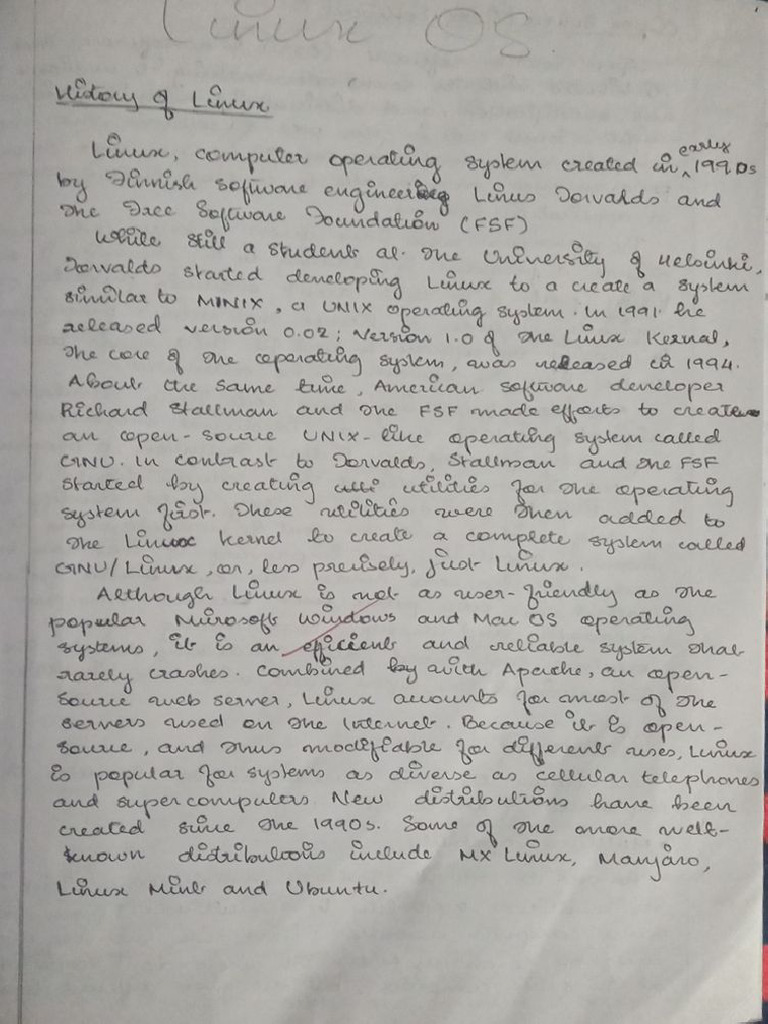 Linux OS
History of Linux
Linux, computer operating system created in early 1990s
by Finnish software engineering Linus Torvalds and
the Free Software Foundation (FSF)
While still a student at the University of Helsinki,
Torvalds started developing Linux to a create a system
similar to MINIX, a UNIX operating system. In 1991 he
released version 0.02; Version 1.0 of the Linux Kernal,
the core of the operating system, was released in 1994.
About the same time, American software developer
Richard Stallman and the FSF made efforts to create
an open-source UNIX-like operating system called
GNU. In contrast to Torvalds, Stallman and the FSF
started by creating utilities for the operating
system first. These utilities were then added to
the Linux kernel to create a complete system called
GNU/Linux, or, less precisely, just Linux.
Although Linux is not as user-friendly as the
popular Microsoft Windows and Mac OS operating
systems, it is an efficient and reliable system that
rarely crashes. Combined by with Apache, an open-
source web server, Linux accounts for most of the
servers used on the Internet. Because it is open-
source, and thus modifiable for different uses, Linux
is popular for systems as diverse as cellular telephones
and supercomputers New distributions have been
created since the 1990s. Some of the more well-
known distributions include MX Linux, Manjaro,
Linux Mint and Ubuntu.